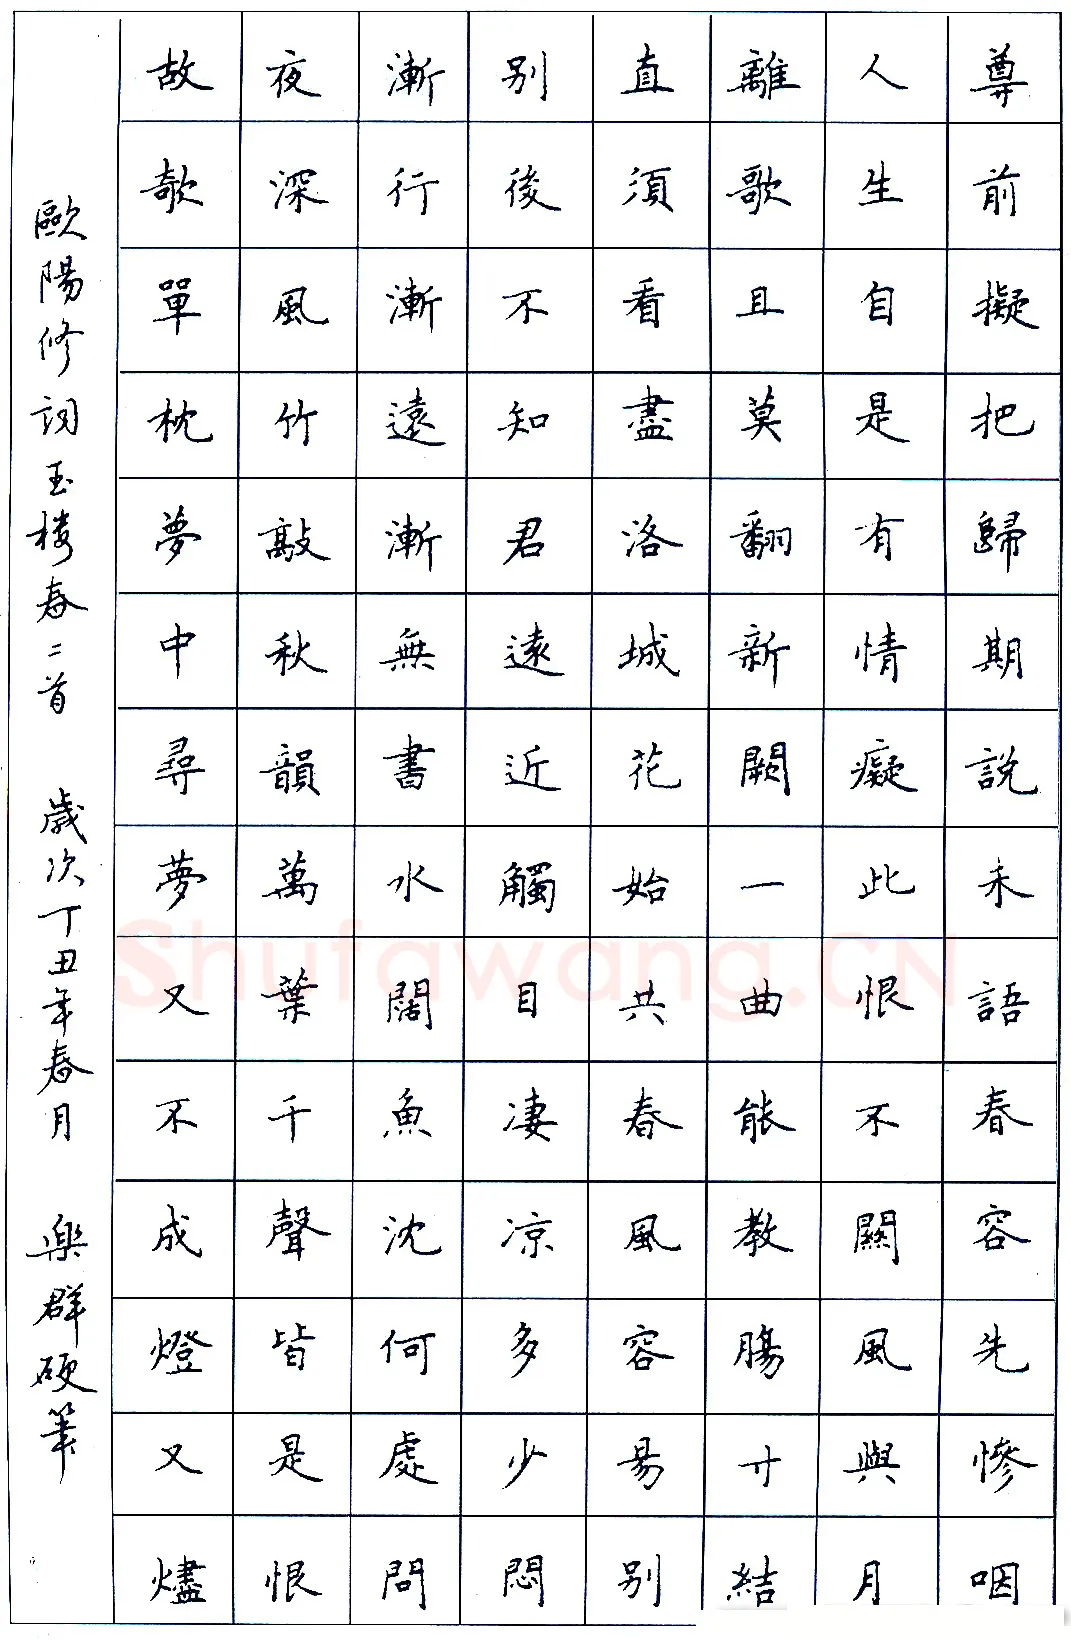 尊前擬把歸期說未語春容先慘咽
人生自是有情癡此恨不關風與月
離歌且莫翻新闋一曲能教腸寸結
直須看盡洛城花始共春風容易別
別後不知君遠近觸目凄涼多少悶
漸行漸遠漸無書水闊魚沈何處問
夜深風竹敲秋韻萬葉千聲皆是恨
故欹單枕夢中尋夢又不成燈又燼
歐陽修詞玉楼春二首 歲次丁丑年春月 樂群硬筆
Shufawang.CN